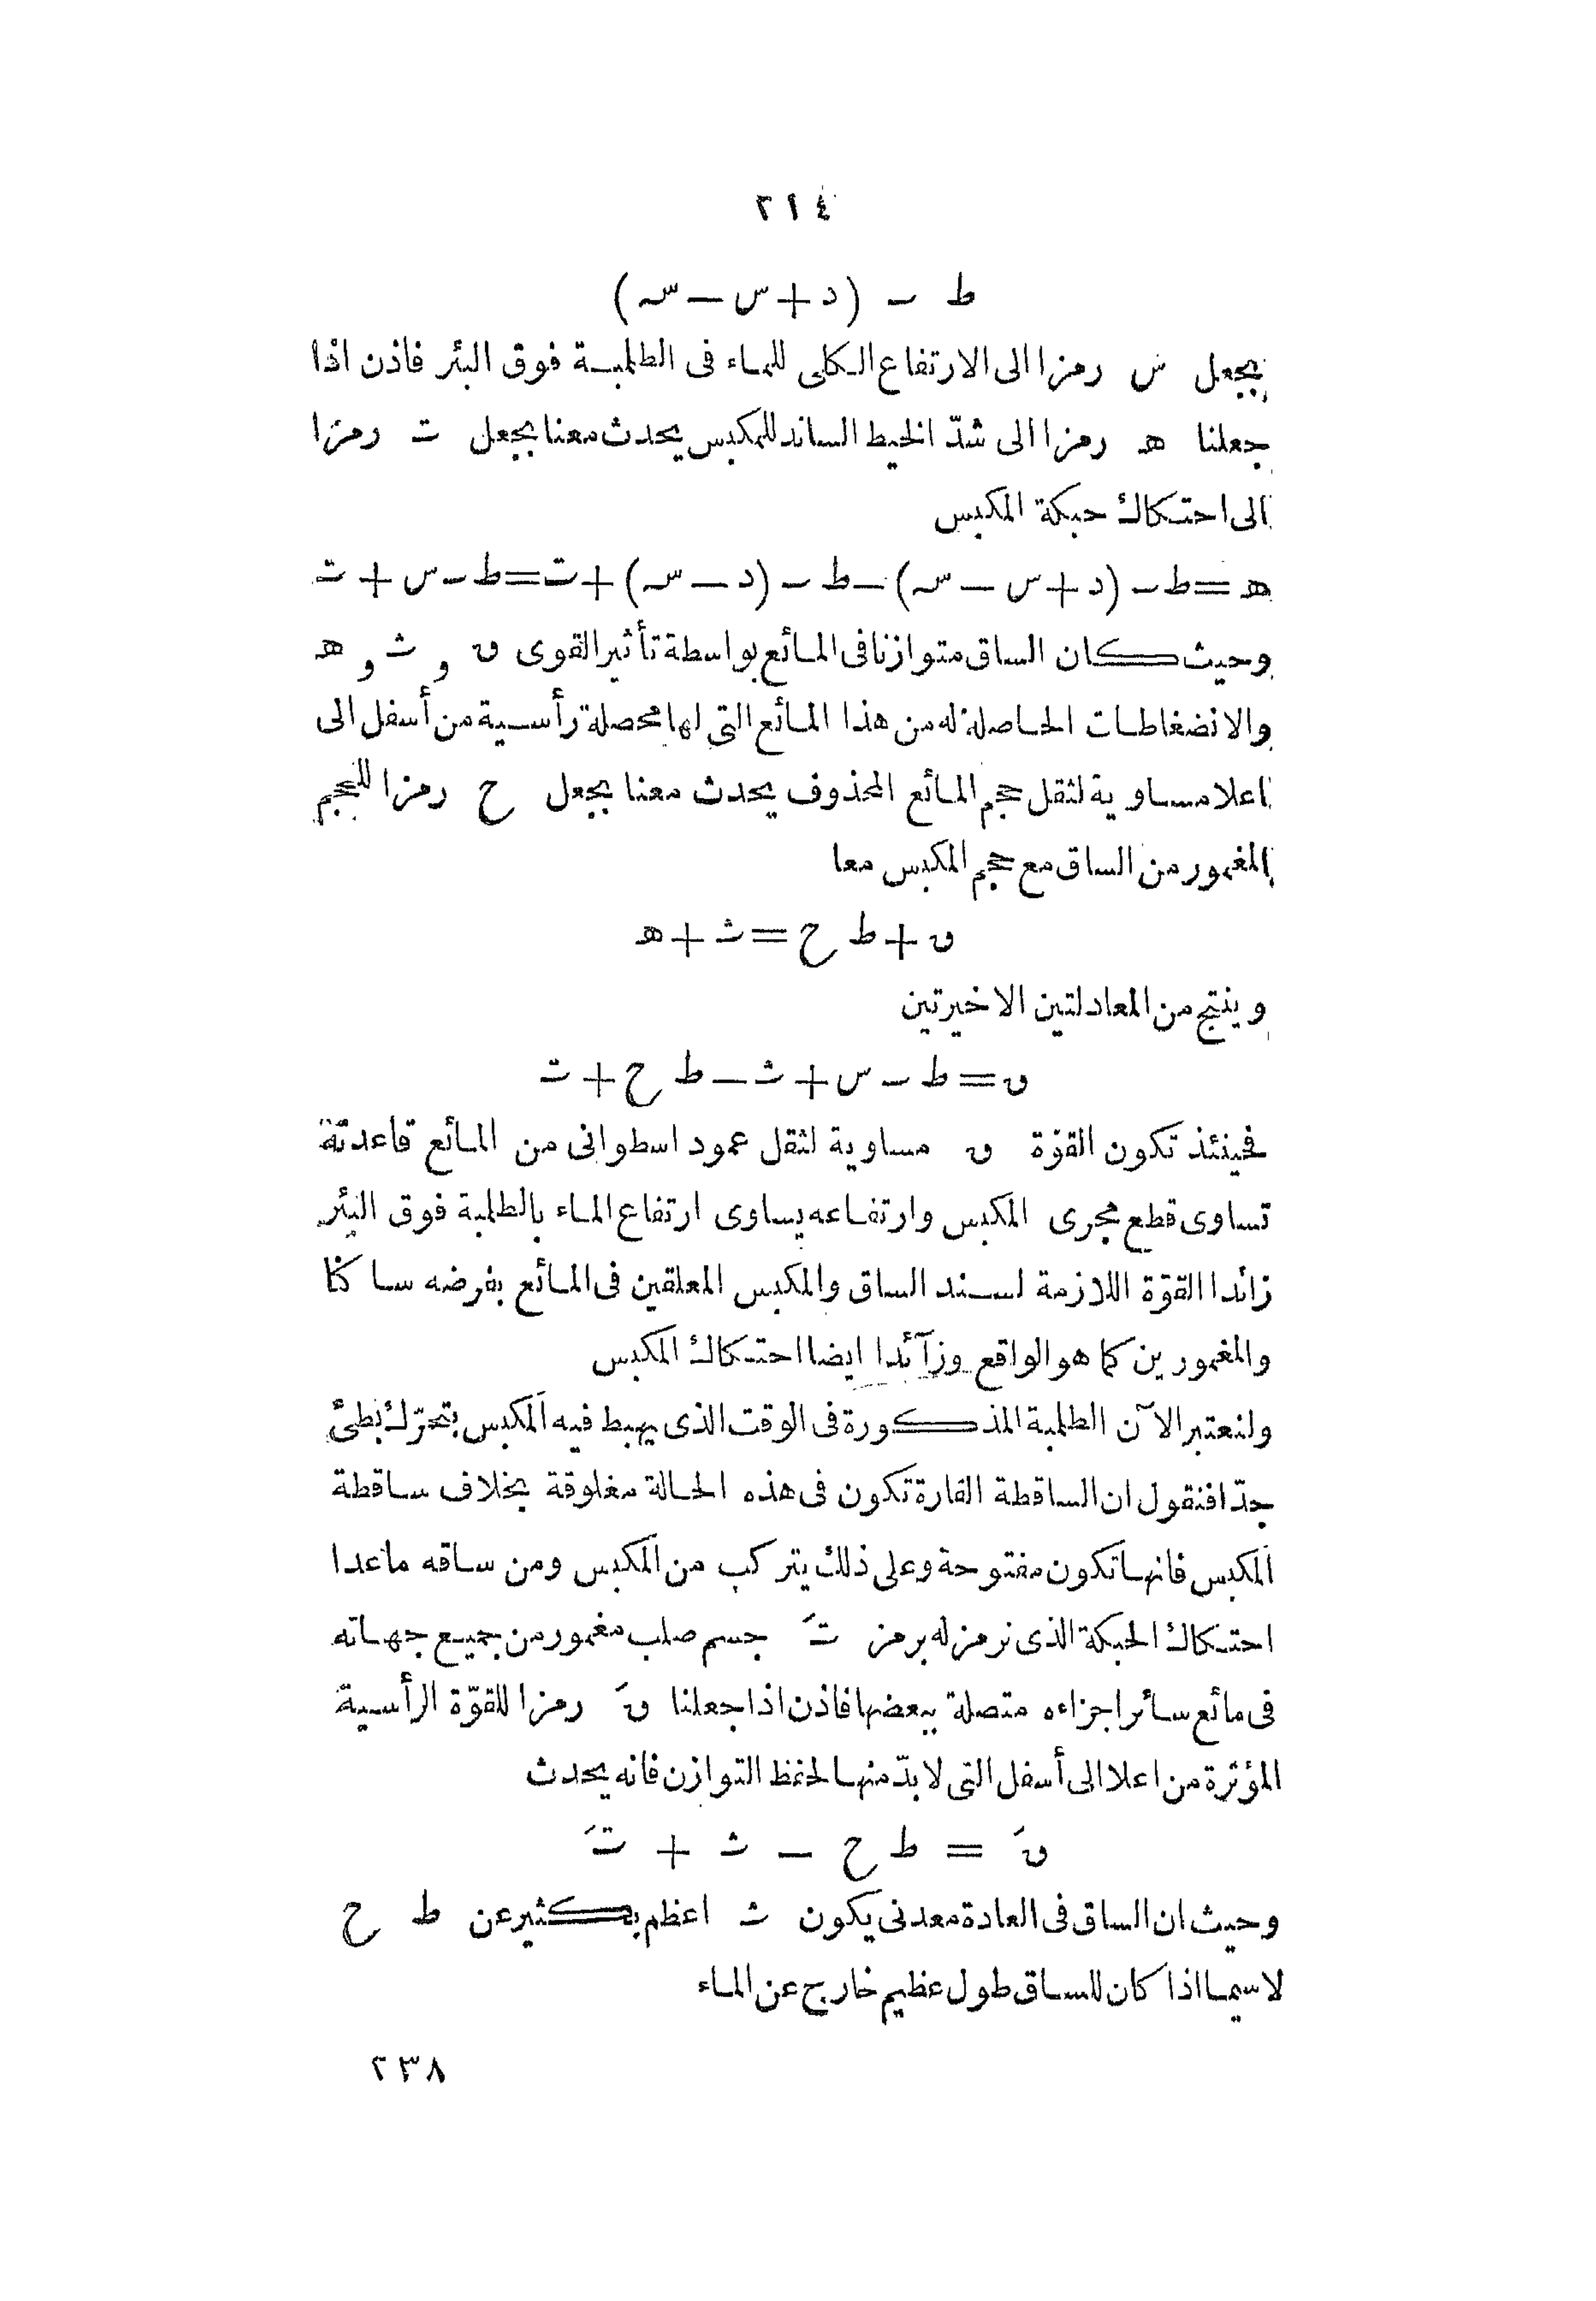 ٢١٤
ط ـ (د+س—سہ)
بجعل س رمزا الى الارتفاع الكلى للماء فى الطلمبة فوق البئر فاذن اذا
جعلنا هـ رمزا الى شدّ الخيط الساند للمكبس يحدث معنا بجعل ت رمزا
الى احتكاك حبكة المكبس
هـ=ط ـ (د+س—سہ)—ط ـ (د—سہ)+ت=ط ـ س+ت
وحيث كان الساق متوازنا فى المائع بواسطة تأثير القوى ں و ث و هـ
والانضغاطات الحاصلة له من هذا المائع التى لها محصلة رأسية من أسفل الى
اعلا مساوية لثقل حجم المائع المحذوف يحدث معنا بجعل ح رمزا للحجم
المغمور من الساق مع حجم المكبس معا
ں+ط ح=ث+هـ
وينتج من المعادلتين الاخيرتين
ں=ط ـ س+ث—ط ح+ت
فحينئذ تكون القوّة ں مساوية لثقل عمود اسطوانى من المائع قاعدته
تساوى قطع مجرى المكبس وارتفاعه يساوى ارتفاع الماء بالطلمبة فوق البئر
زائدا القوّة اللازمة لسند الساق والمكبس المعلقين فى المائع بفرضه ساكنا
والمغمورين كما هو الواقع وزآئدا ايضا احتكاك المكبس
ولنعتبر الآن الطلمبة المذكورة فى الوقت الذى يهبط فيه المكبس بتحرّك بطئ
جدّا فنقول ان الساقطة القارة تكون فى هذه الحالة مغلوقة بخلاف ساقطة
المكبس فانها تكون مفتوحة وعلى ذلك يتركب من المكبس ومن ساقه ماعدا
احتكاك الحبكة الذى نرمز له برمز تَ جسم صلب مغمور من جميع جهاته
فى مائع سائر اجزاءه متصلة ببعضها فاذن اذا جعلنا ںَ رمزا للقوّة الرأسية
المؤثرة من اعلا الى أسفل التى لابدّ منها لحفظ التوازن فانه يحدث
ںَ = ط ح — ث + تَ
وحيث ان الساق فى العادة معدنى يكون ث اعظم بكثير عن ط ح
لاسيما اذا كان للساق طول عظيم خارج عن الماء
٢٣٨